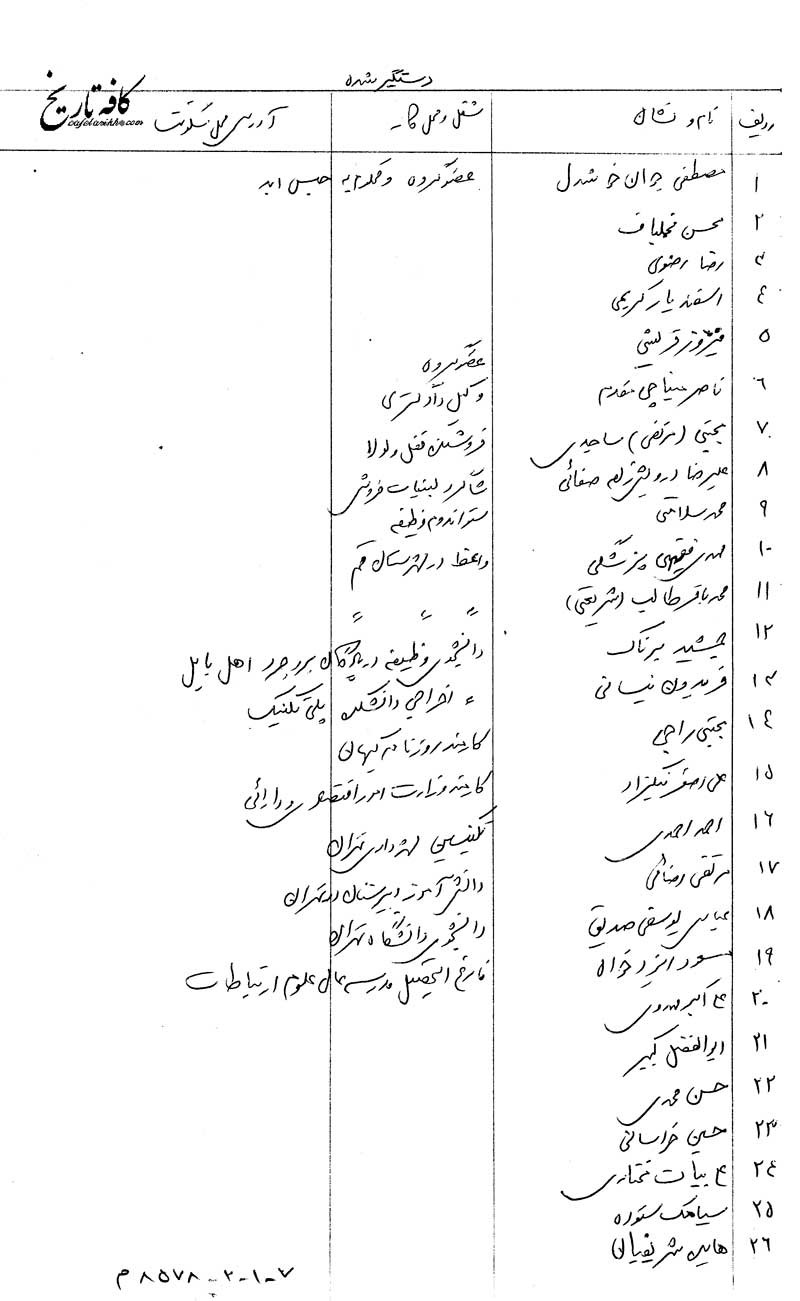 دستگیر شده
ردیف نام و نشان شغل و محل کار آدرس محل سکونت
کافه تاریخ
cafetarikh.com
۱ مصطفی جوان خوشدل عضو گروه و محکوم به حبس ابد
۲ محسن مخملباف
۳ رضا رضوی
۴ اسفندیار کریمی
۵ فیروز قریشی عضو گروه
۶ ناصر میناچی مقدم وکیل دادگستری
۷ مجتبی (مرتضی) ساجدی فروشنده قفل و لولا
۸ علیرضا درویش زاده صفائی شاگرد لبنیات فروشی
۹ محمد سلامتی ستواندوم وظیفه
۱۰ مهدی فقیهی پزشکی واعظ در شهرستان قم
۱۱ محمد باقر طالب (شریعتی) 〃 〃 〃
۱۲ جمشید بیرنگ دانشجوی وظیفه در پادگان بروجرد اهل بابل
۱۳ فریدون نیسانی 〃 اخراجی دانشکده پلی تکنیک
۱۴ مجتبی راجی کارمند روزنامه کیهان
۱۵ علی اصغر نیکیزاد کارمند وزارت امور اقتصادی و دارائی
۱۶ احمد احمدی تکنیسین شهرداری تهران
۱۷ مرتضی رضائی دانش آموز دبیرستان در تهران
۱۸ عباس یوسفی صدیق دانشجوی دانشگاه تهران
۱۹ مسعود ایزدخواه فارغ التحصیل مدرسه عالی علوم ارتباطات
۲۰ ع اکبر مهدوی
۲۱ ابوالفضل کبیر
۲۲ حسن محمدی
۲۳ حسین خراسانی
۲۴ ع بیات مختاری
۲۵ سیامک ستوده
۲۶ هادی شریفیان
۷-۱-۲-۸۵۷۸ م